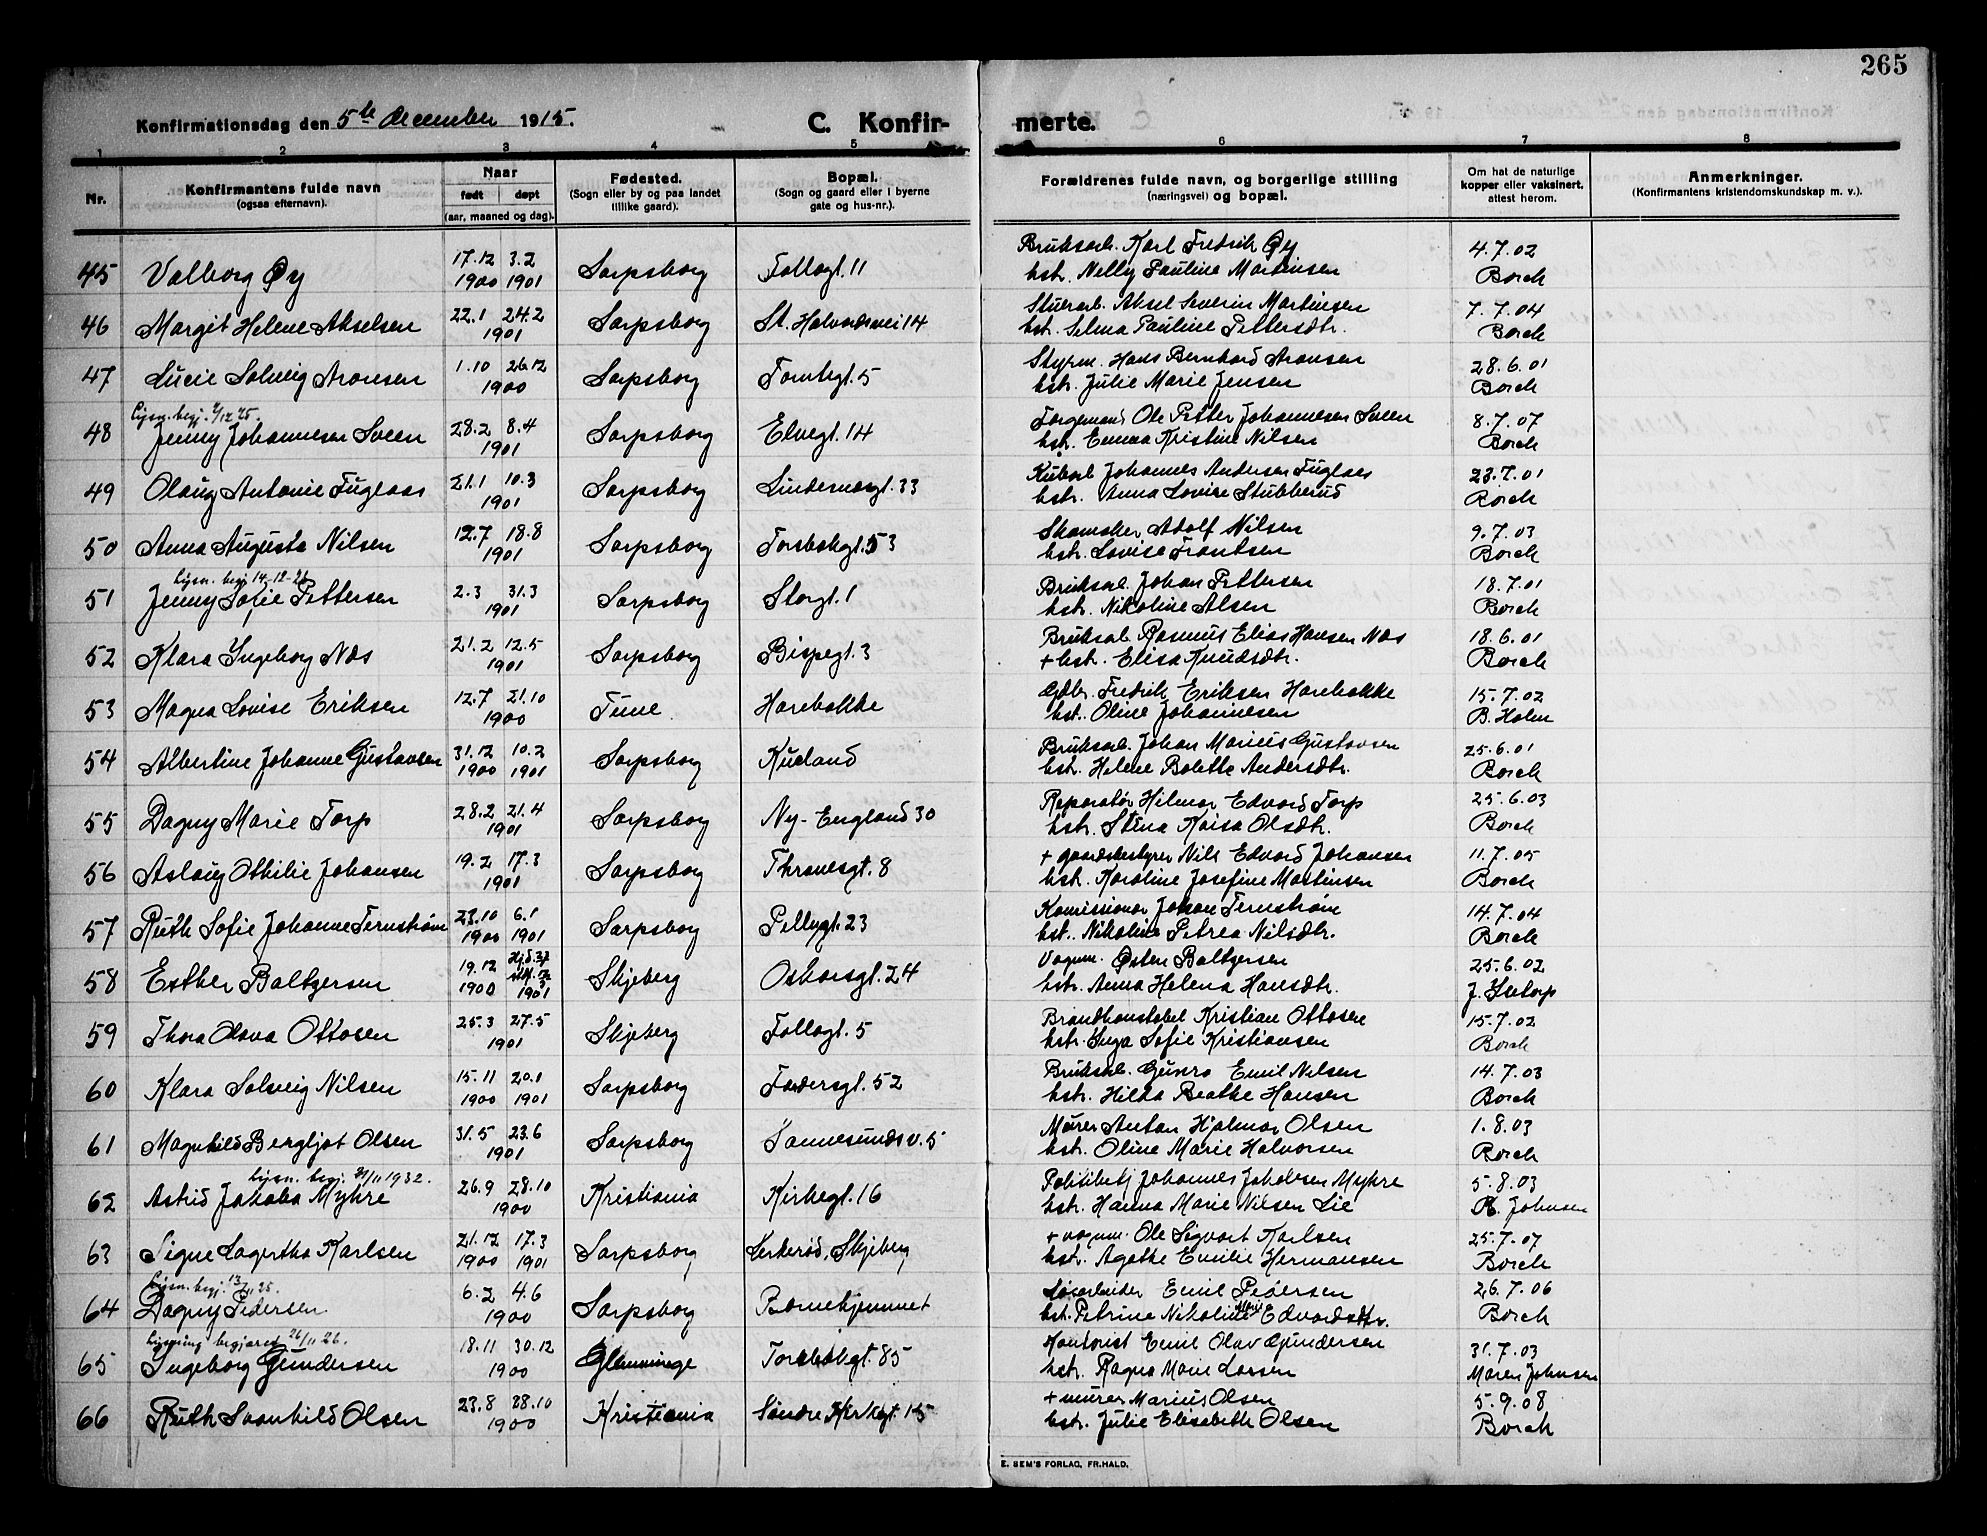 265
Konfirmationsdag den 5te december 1915.
C. Konfir- merte.
1 2 3 4 5 6 7 8
Nr.
Konfirmantens fulde navn
(ogsaa efternavn).
Naar
født døpt
(aar, maaned og dag).
Fødested.
(Sogn eller by og paa landet
tillike gaard).
Bopæl.
(Sogn og gaard eller i byerne
gate og hus-nr.).
Forældrenes fulde navn, og borgerlige stilling
(næringsvei) og bopæl.
Om hat de naturlige
kopper eller vaksinert,
attest herom.
Anmerkninger.
(Konfirmantens kristendomskundskap m. v.).
17.12 3.2 Bruksarb. Karl Fredrik Øy 4.7.02
45 Valborg Øy 1900 1901 Sarpsborg Follogt. 11 hstr. Nelly Pauline Martinsen Borch
22.1 24.2 Stuerarb. Aksel Severin Martinsen 7.7.04
46 Margit Helene Akselsen 1901 Sarpsborg St. Halvardsvei 14 hst. Selma Pauline Pettersdtr. Borch
1.10 26.12 Styrm. Hans Bernhard Aronsen 28.6.01
47 Lucie Solveig Aronsen 1900 Sarpsborg Tomtegt. 5 hstr. Julie Marie Jensen Borch
Lysn. begj. 4/12 25.
28.2 8.4 Torgemand Ole Petter Johannesen Sveen 8.7.07
48 Jenny Johannesen Sveen 1901 Sarpsborg Elvegt. 14 hstr. Emma Kristine Nilsen Borch
21.1 10.3 Kuborb Johannes Andersen Fuglaas 23.7.01
49 Olaug Antonie Fuglaas 1901 Sarpsborg Lindemansgt. 33 hstr. Anna Lovise Stubberud Borch
12.7 18.8 Skomaker Adolf Nilsen 9.7.03
50 Anna Augusta Nilsen 1901 Sarpsborg Torsbekgt. 53 hstr. Lovise Frantsen Borch
Lysn. begj 14-12-21
2.3 31.3 Bruksarb. Johan Pettersen 18.7.01
51 Jenny Sofie Pettersen 1901 Sarpsborg Storgt. 1 hstr. Nikoline Alsen Borch
21.2 12.5 Bruksarb. Rasmus Elias Hansen Næs 18.6.01
52 Klara Ingeborg Næs 1901 Sarpsborg Bispegt. 3 + hstr. Elisa Knudsdtr. Borch
12.7 21.10 Gdbr. Fredrik Eriksen Harebakke 15.7.02
53 Magna Lovise Eriksen 1900 Tune Harebakke hst. Oline Johannesen B. Holm
31.12 10.2 Bruksarb. Johan Marius Gustavsen 25.6.01
54 Albertine Johanne Gustavsen 1900 1901 Sarpsborg Kueland hstr. Helene Bolette Andersdtr. Borch
28.2 21.4 Reparatør Hilmar Edvard Torp 25.6.03
55 Dagny Marie Torp 1901 Sarpsborg Ny-England 30 hstr. Stina Kaisa Olsdtr. Borch
19.2 17.3 + gaardsbestyrer Nils Edvard Johansen 11.7.05
56 Aslaug Othilie Johansen 1901 Sarpsborg Thranesgt. 8 hstr. Karoline Josefine Martinsen Borch
23.10 6.1 Komissionær Johan Ternstrøm 14.7.04
57 Ruth Sofie Johanne Ternstrøm 1900 1901 Sarpsborg Pellygt. 23 hst. Nikoline Petrea Nilsdtr. Borch
19.12 Hjd. Vognm. Østen Baltzersen 25.6.02
58 Esther Baltzersen 1900 1901 Skjeberg Oskarsgt. 24 hstr. Anna Helena Hansdtr. J. Istorp
25.3 27.5 Brandkonstabel Kristian Ottosen 15.7.02
59 Thora Olava Ottosen 1901 Skjeberg Follogt. 5 hstr. Inga Sofie Kristiansen Borch
15.11 20.1 Bruksarb. Gunro Emil Nilsen 14.7.03
60 Klara Solveig Nilsen 1900 1901 Sarpsborg Fædersgt. 52 hstr. Hilda Beathe Hansen Borch
31.5 23.6 Murer Anton Hjalmar Olsen 1.8.03
61 Magnhild Bergljot Olsen 1901 Sarpsborg Sannesundsv. 5 hstr. Oline Marie Halvorsen Borch
Lysn. begj. 21/11 1932.
26.9 28.10 Politibetj Johannes Jakobsen Myhre 5.8.03
62 Astrid Jakoba Myhre 1900 Kristiania Kirkegt. 16 hstr. Hanna Marie Nilsen Lie R. Johnsen
21.12 17.3 + vognm. Ole Sigvart Karlsen 25.7.07
63 Signe Lagertha Karlsen 1900 1901 Sarpsborg Lerkerød, Skjeberg hstr. Agathe Emilie Hermansen Borch
Lysn. begj. 13/11 25.
6.2 4.6 Løsarbeider Emil Pedersen 26.7.06
64 Dagny Pedersen 1900 Sarpsborg Barnehjemmet hst. Petrine Nikoline Marie Edvardsdtr. Borch
Lysning begjæred 26/11 26.
18.11 30.12 Kontorist Emil Olav Gundersen 31.7.03
65 Ingeborg Gundersen 1900 Glemminge Torsbekgt. 85 hstr. Ragna Marie Larsen Maren Johnsen
23.8 28.10 + murer Marius Olsen 5.9.08
66 Ruth Svanhild Olsen 1900 Kristiania Søndre Kirkegt. 15 hstr. Julie Elisabeth Olsen Borch
E. SEM'S FORLAG, FR.HALD.